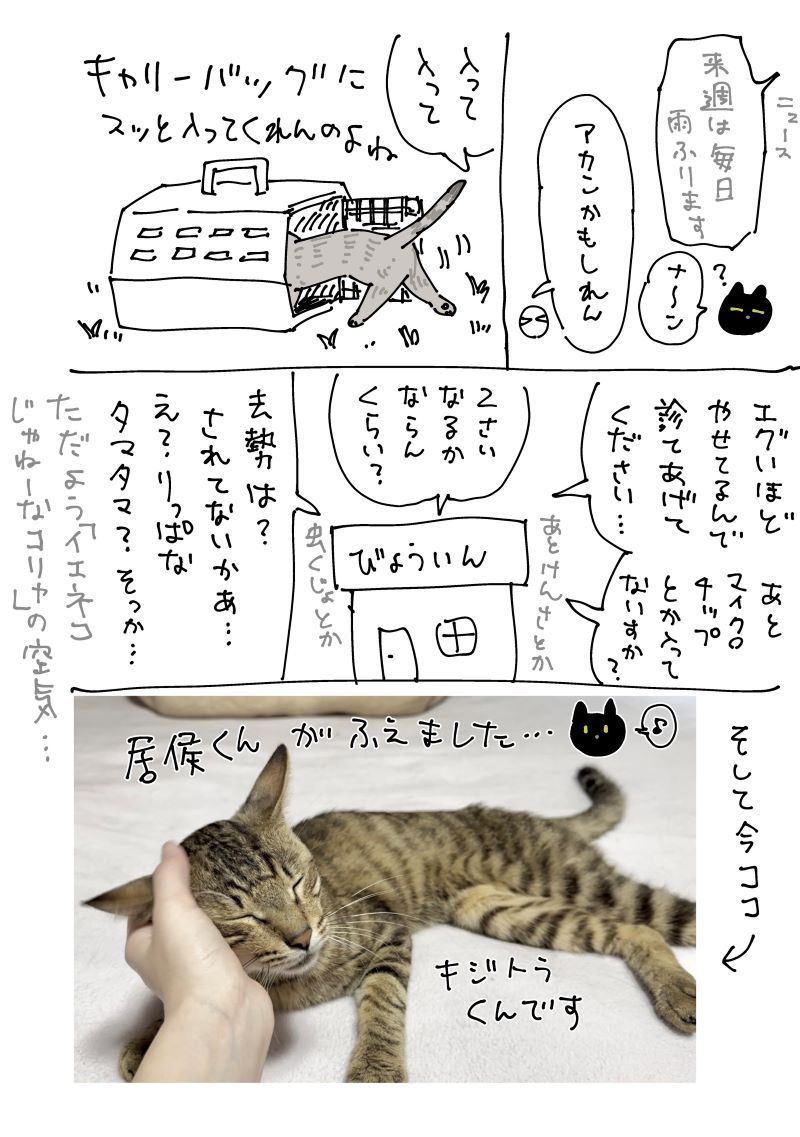 ニュース
来週は毎日
雨ふります
?
ナ〜ン
アカンかもしれん
入って
入って
キャリーバッグに
スッと入ってくれんのよね
エグいほど
やせてるんで
診てあげて
ください…
あと
マイクロ
チップ
とか入って
ないすか?
あとけんさとか
2さい
なるか
ならん
くらい?
びょういん
虫くじょとか
去勢は?
されてないかぁ…
え?りっぱな
タマタマ?そっか…
ただよう「イエネコ
じゃねーなコリャ」の空気…
そして今ココ
居候くんがふえました…
♪
キジトラ
くんです